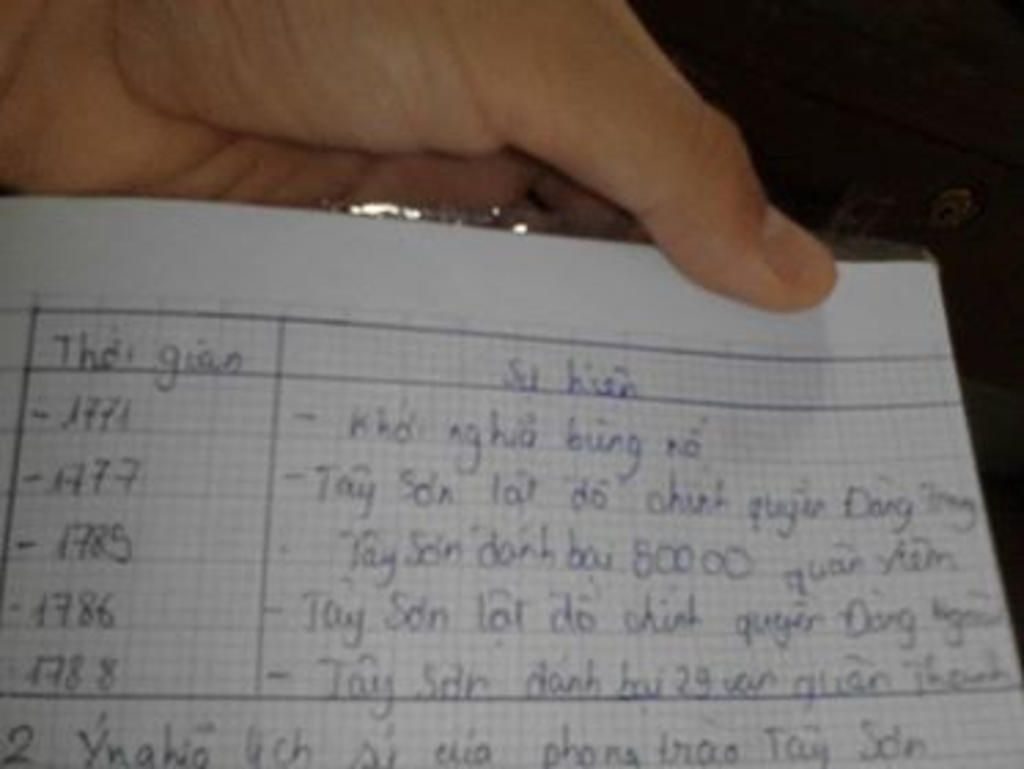 Thời gian Sự kiện
- 1771 - Khởi nghĩa bùng nổ
- 1777 - Tây Sơn lật đổ chính quyền Đàng Trong
- 1785 - Tây Sơn đánh bại 50000 quân Xiêm
- 1786 - Tây Sơn lật đổ chính quyền Đàng Ngoài
- 1788 - Tây Sơn đánh bại 29 vạn quân Thanh
2 Ý nghĩa lịch sử của phong trào Tây Sơn